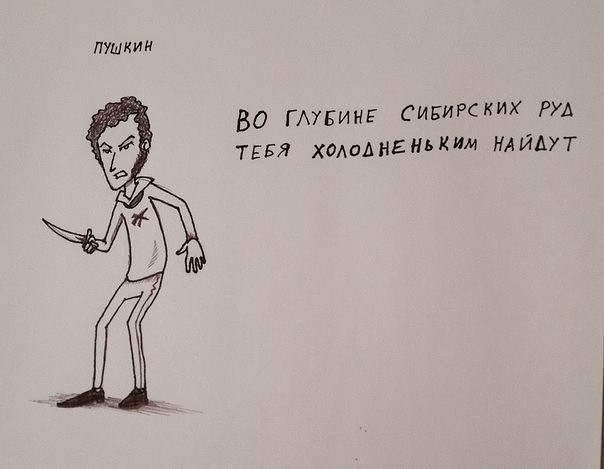 ПУШКИН
ВО ГЛУБИНЕ СИБИРСКИХ РУД
ТЕБЯ ХОЛОДНЕНЬКИМ НАЙДУТ